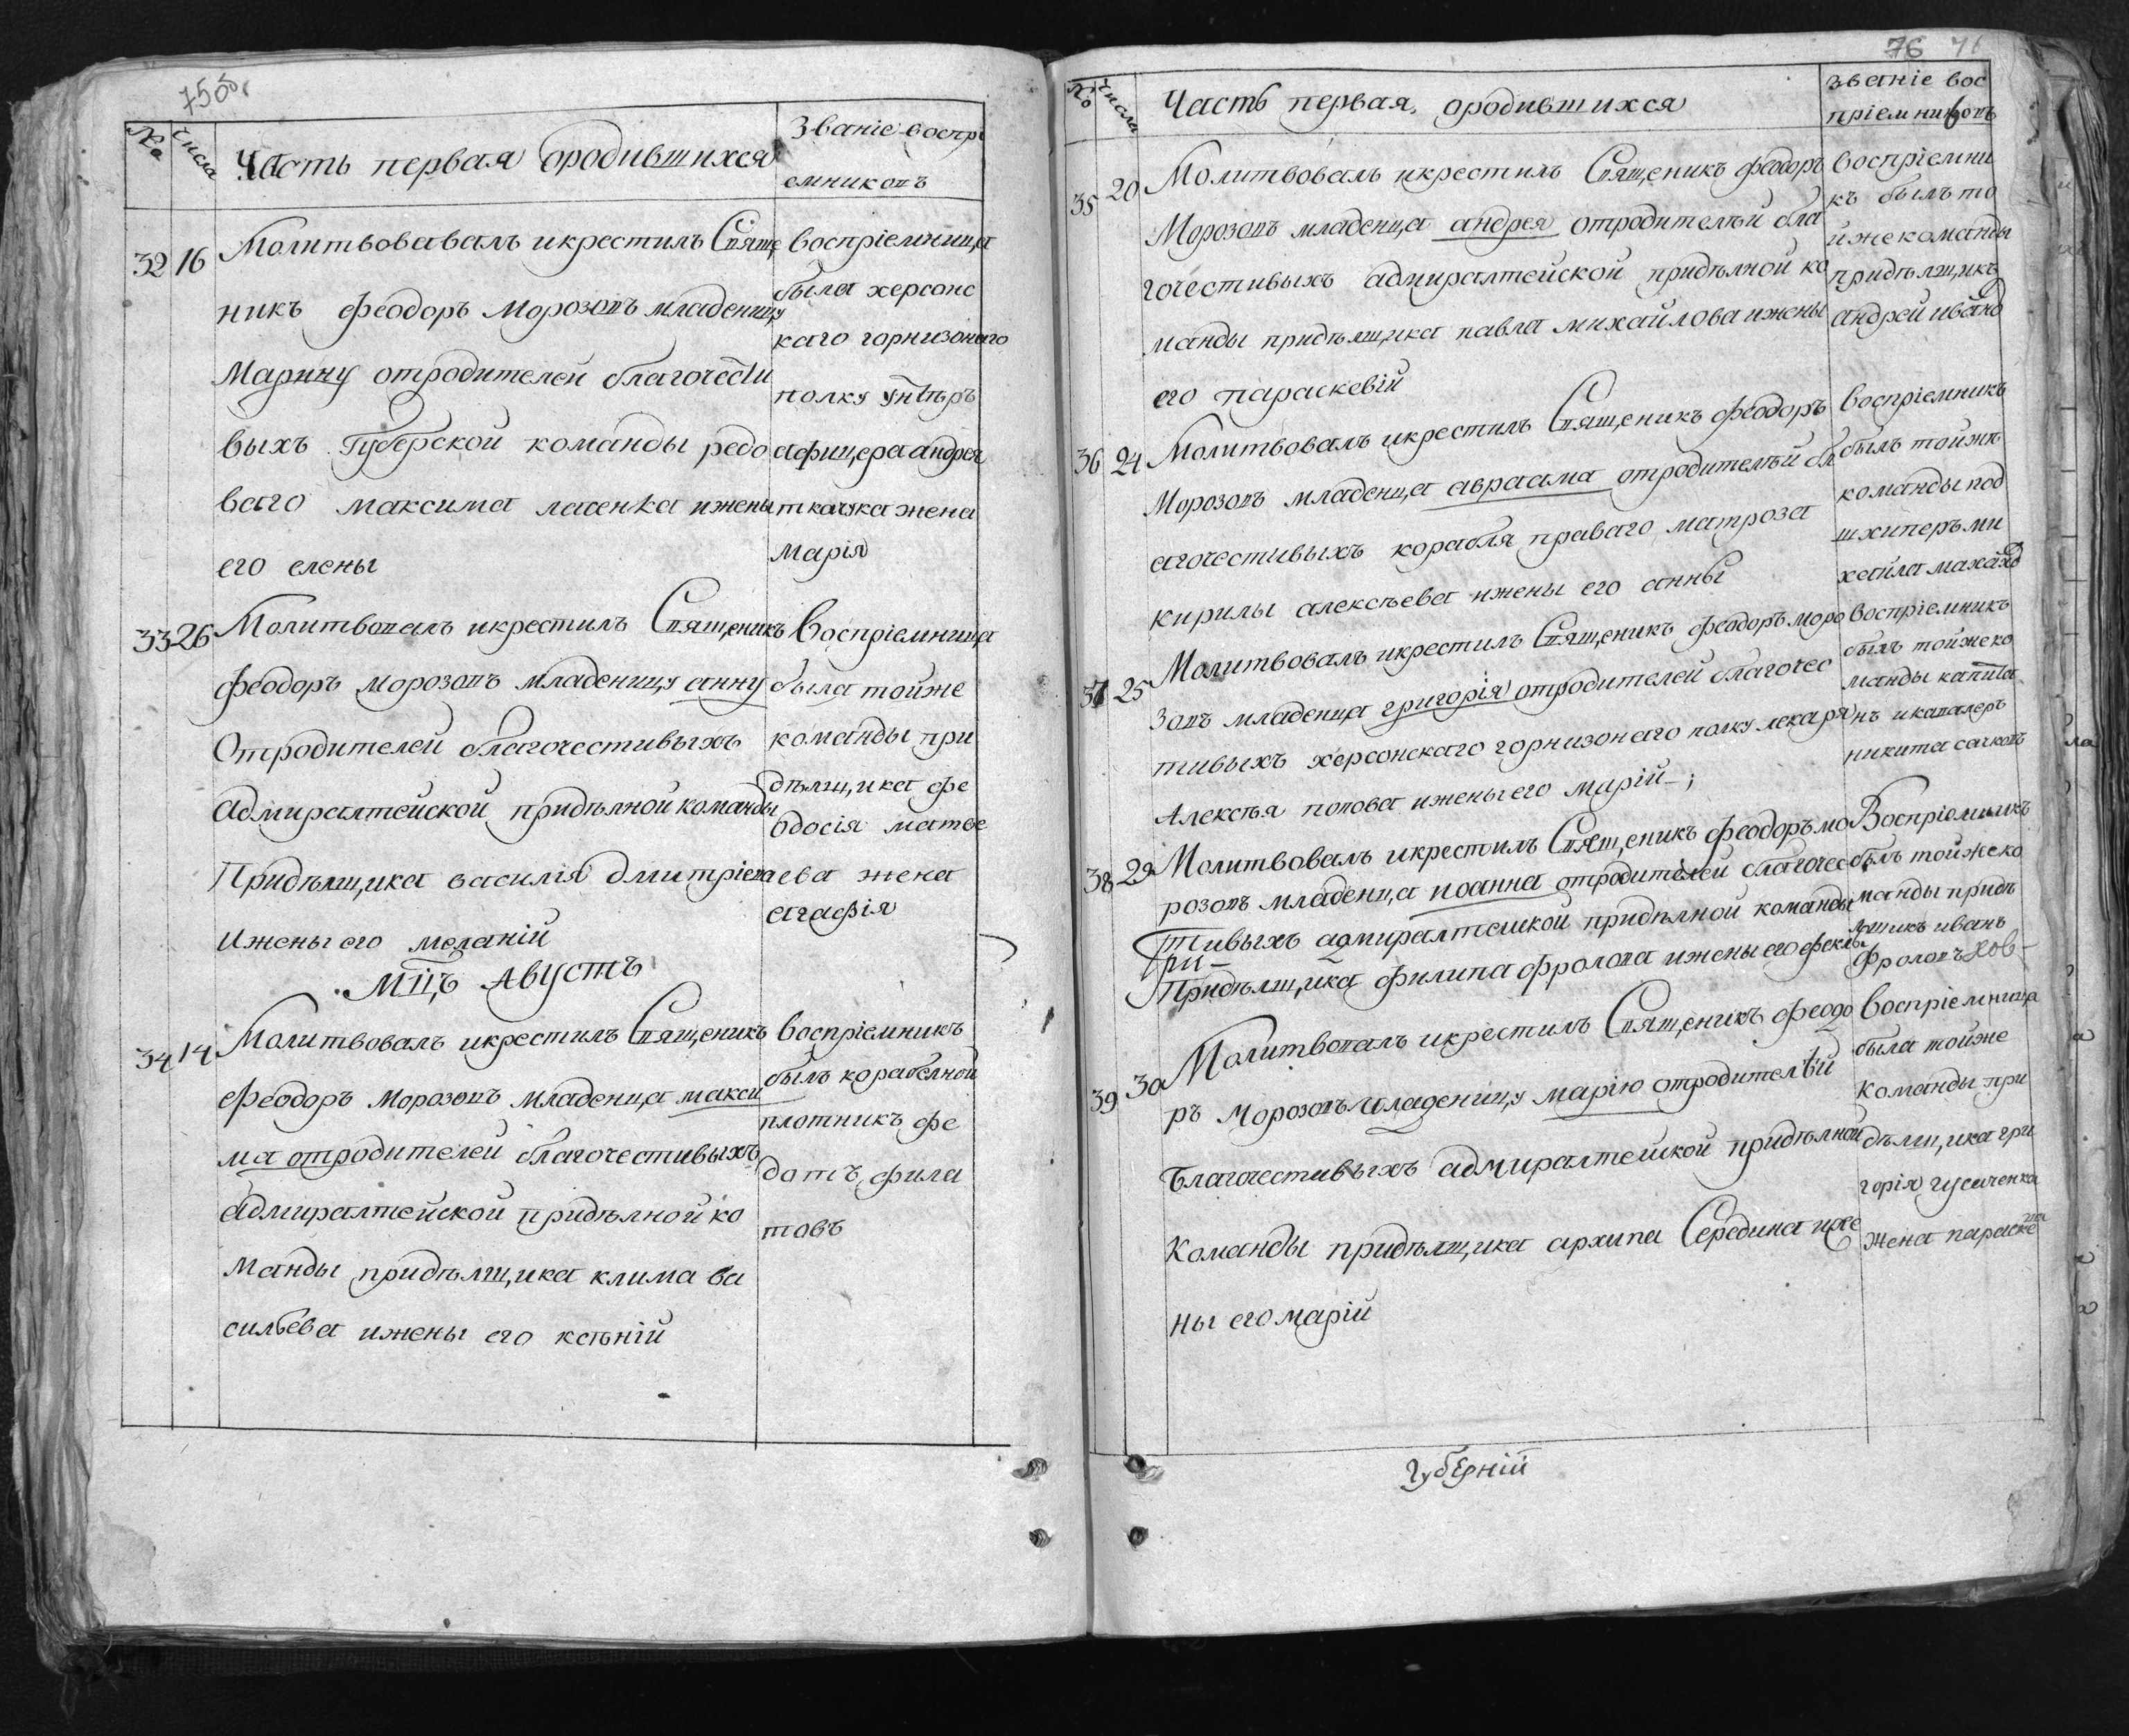 75об
№
числа
Часть первая ородившихся
Званіе воспрі
емниковъ
32
16
Молитвововалъ икрестилъ Свяще
никъ феодоръ Морозовъ младеницу
Марину отродителей благочести
выхъ Губерской команды редо
ваго максима ласенка ижены
его елены
воспріемница
была херсонс
каго горнизонаго
полку унтеръ
афицера андрея
ткачука жена
марія
33
26
Молитвовалъ икрестилъ Священикъ
феодоръ морозовъ младеницу анну
Отродителей благочестивыхъ
Адмиралтейской придѣлной команды
Придѣлщика василія дмитріева
ижены его меланій
Воспріемница
была тойже
команды при
дѣлщика фе
одосія матве
ева жена
агафія
Мцъ Августъ
34
14
Молитвовалъ икрестилъ Священикъ
феодоръ Морозовъ младенца макси
ма отродителей благочестивыхъ
адмиралтейской придѣлной ко
манды придѣлщика клима ва
сильева ижены его ксѣній
воспріемникъ
былъ корабелной
плотникъ фе
дотъ фила
товъ
76 76
№
числа
Часть первая, ородившихся
званіе вос
пріемниковъ
35
20
Молитвовалъ икрестилъ Священикъ феодоръ
Морозовъ младенца андрея отродителѣй бла
гочестивыхъ адмиралтейской придѣлной ко
манды придѣлщика павла михайлова ижены
его параскевій
воспріемни
къ былъ то
йже команды
придѣлщикъ
андрей иванo
36
24
Молитвовалъ икрестилъ Священикъ феодоръ
Морозовъ младенца авраама отродителѣй бл
агочестивыхъ корабля праваго матроза
кирилы алексѣева ижены его анны
воспріемникъ
былъ тойжѣ
команды под
шхиперъ ми
хайла
37
25
Молитвовалъ икрестилъ Священикъ феодоръ моро
зовъ младенца григорія отродителей благочес
тивыхъ херсонскаго горнизонаго полку лекаря
Алексѣя попова ижены его марій
воспріемникъ
былъ тойже ко
манды капита
нъ икавалеръ
никита сачковъ
38
29
Молитвовалъ икрестилъ Священикъ феодоръ мо
розовъ младенца иоанна отродителей благочес
тивыхъ адмиралтейской придѣлной команды
Придѣлщика филипа фролова ижены его феклы
Воспріемникъ
былъ тойже ко
манды придѣ
лщикъ иванъ
фроловъ
39
30
Молитвовалъ икрестилъ Священикъ феодо
ръ морозовъ младеницу марію отродителѣй
Благочестивыхъ адмиралтейской придѣлной
команды придѣлщика архипа Середина иже
ны его марій
воспріемница
была тойже
команды при
дѣлщика гри
горія гусаченка
жена параске
ва
губерній